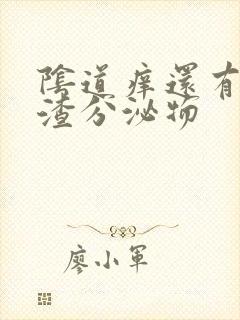 陰道痒還有
渣分泌物
廖小軍